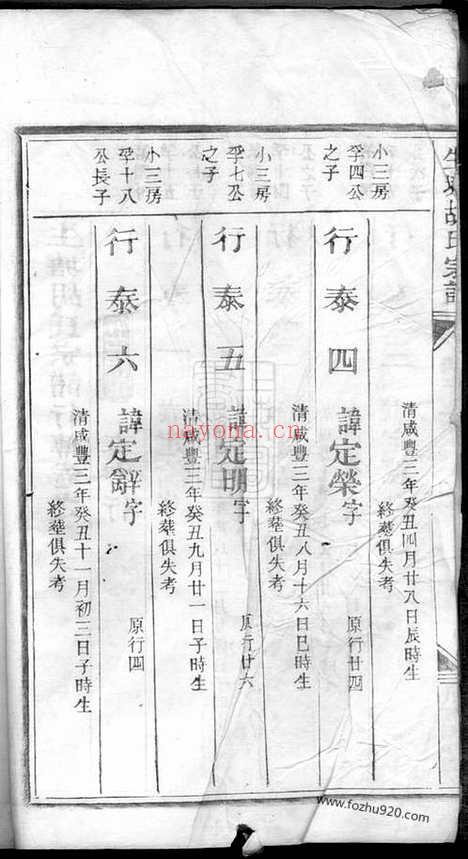 胡氏宗譜
清咸豐三年癸丑四月廿九日辰時生
終塟俱失考
小三房
孚四公
之子
行泰四
諱定榮字
原行廿四
清咸豐三年癸丑八月十六日巳時生
終塟俱失考
小三房
孚七公
之子
行泰五
諱定明字
原行廿六
清咸豐三年癸丑九月廿一日子時生
終塟俱失考
小三房
孚十八
公長子
行泰六
諱定字
原行四
清咸豐三年癸丑十一月初三日子時生
終塟俱失考
nayona.cn
www.fozhu920.com